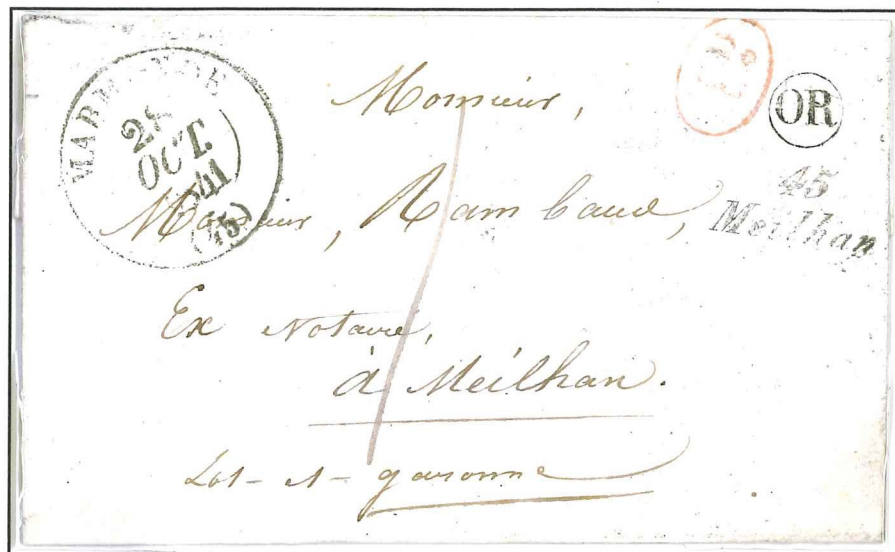 MARMANDE
28
OCT.
41
(45)
OR
45
Meilhan
Monsieur,
Monsieur, Rambaud,
Ex Notaire,
à Meilhan.
Lot-et-garonne
1